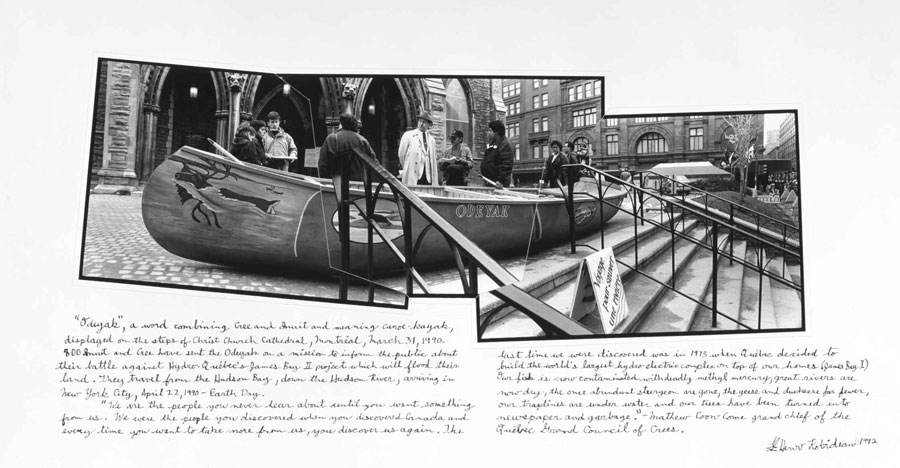 ODEYAK
Voyage
pour sauver
une rivière
"Odeyak", a word combining Cree and Inuit and meaning canoe-kayak,
displayed on the steps of Christ Church Cathedral, Montréal, March 31, 1990.
800 Inuit and Cree have sent the Odeyak on a mission to inform the public about
their battle against Hydro-Québec's James Bay II project which will flood their
land. They travel from the Hudson Bay, down the Hudson River, arriving in
New York City, April 22, 1990 - Earth Day.
"We are the people you never hear about until you want something
from us. We were the people you discovered when you discovered Canada and
every time you want to take more from us, you discover us again. The
last time we were discovered was in 1973 when Québec decided to
build the world's largest hydro-electric complex on top of our homes (James Bay I)
Our fish is now contaminated with deadly methyl mercury, great rivers are
now dry, the once abundant sturgeon are gone, the geese and ducks are far fewer,
our traplines are under water and our trees have been turned in to
newspaper and garbage." - Mathew Coon Come grand chief of the
Québec Grand Council of Crees.
Henri Robideau 1992